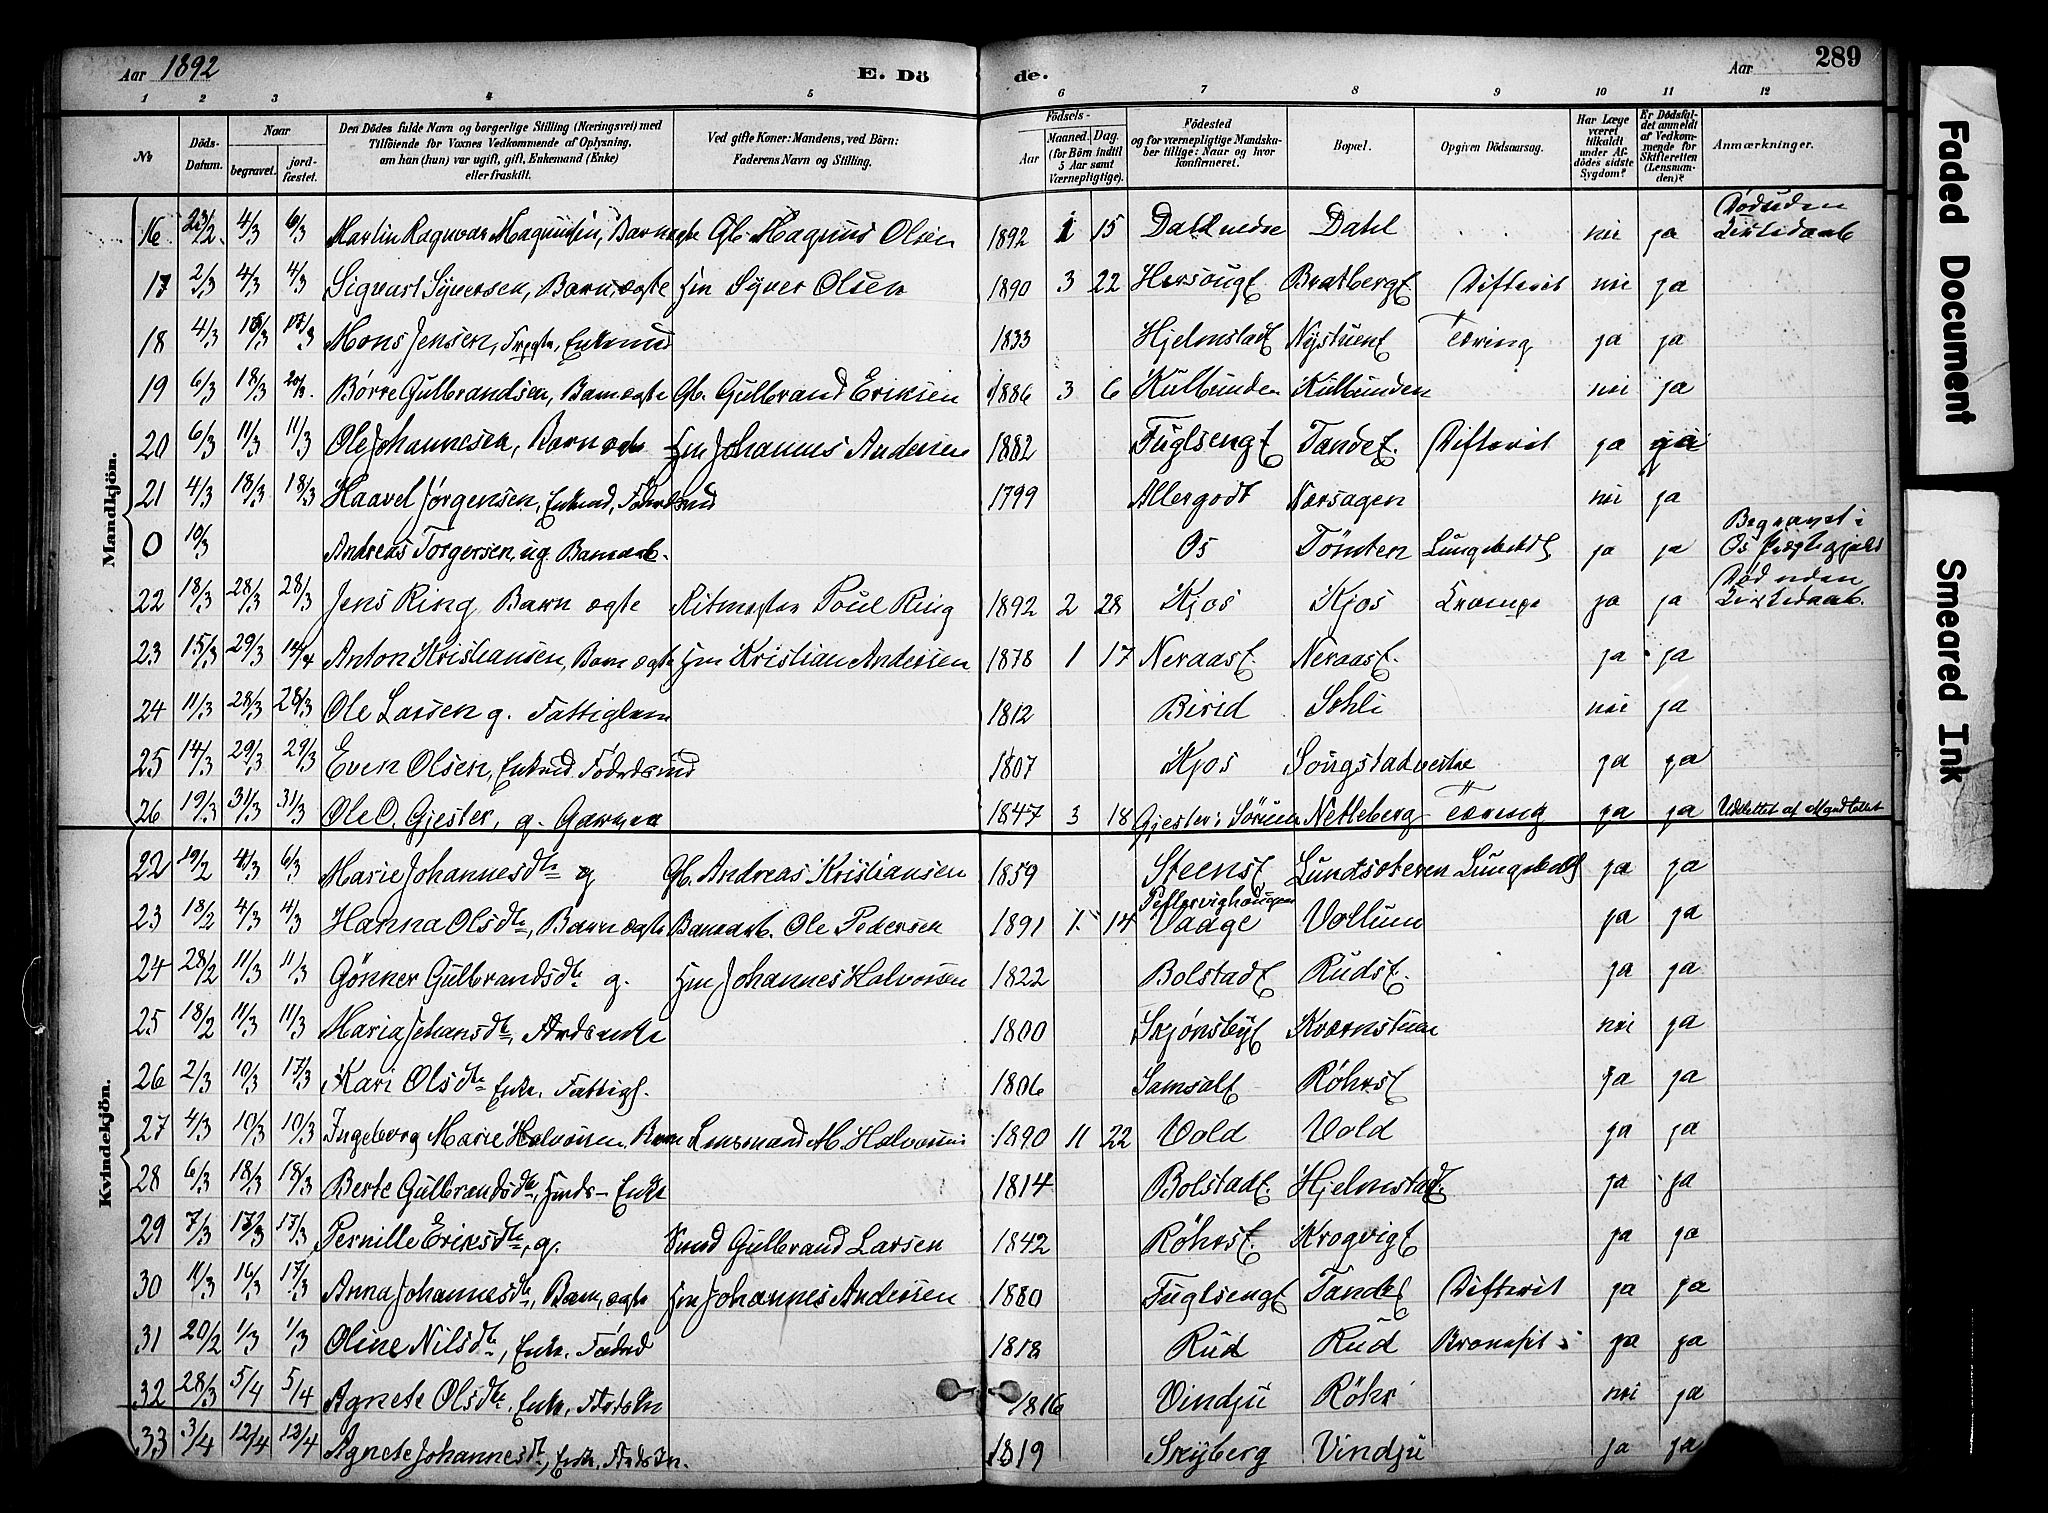 Aar 1892
E. Dö
de.
Aar
289
1 2 3 4 5 6 7 8 9 10 11 12
No
Döds-Datum.
Naar
begravet.
jord-fæstet.
Den Dödes fulde Navn og borgerlige Stilling (Næringsvei) med
Tilföiende for Voxnes Vedkommende af Oplysning,
om han (hun) var ugift, gift, Enkemand (Enke)
eller fraskilt.
Ved gifte Koner: Mandens, ved Börn:
Faderens Navn og Stilling.
Födsels-
Aar
Maaned. Dag.
(for Börn indtil
5 Aar samt
Værnepligtige).
Födested
og for værnepligtige Mandska-
ber tillige: Naar og hvor
konfirmeret.
Bopæl.
Opgiven Dödsaarsag.
Har Læge
været
tilkaldt
under Af-
dödes sidste
Sygdom?
Er Dödsfal-
det anmeldt
af Vedkom-
mende for
Skifteretten
(Lensman-
den)?
Anmærkninger.
Mandkjön.
16 23/2 4/3 6/3 Martin Ragnvar Magnusen, Barn ægte Gb. Magnus Olsen 1892 1 15 Dahl nedre Dahl nei ja Död uden
17 2/3 4/3 4/3 Sigvart Syversen, Barn, ægte Hm Syver Olsen 1890 3 22 HersougE BratbergE Difterit nei ja
18 4/3 15/3 17/3 Mons Jensen, Enkmd 1833 HjelmstadE NystuenE Tæring ja ja
19 6/3 18/3 20/3 Börre Gulbrandsen, Barn ægte Gb. Gulbrand Eriksen 1886 3 6 Kulbunden Kulbunden nei ja
20 6/3 11/3 11/3 Ole Johannesen, Barn ægte Hm Johannes Andersen 1882 FuglsengE TandeE. Difterit ja ja
21 4/3 18/3 18/3 Haavel Jørgensen, Enkmd, Föderdsmd 1799 Allergodt Korsagen nei ja
0 10/3 Andreas Torgersen, ug. Banearb. Os Tömten Lungebetdls ja ja Begravet i Os Prægtegjeld
22 18/3 28/3 28/3 Jens Ring Barn ægte Ritmester Poul Ring 1892 2 28 Kjos Kjos Krampe ja ja Död uden
23 15/3 29/3 12/4 Anton Kristiansen, Barn ægte Hm Kristian Andersen 1878 1 17 NeraasE. NeraasE. ja ja
24 11/3 28/3 28/3 Ole Larsen g. Fattiglem 1812 Birid Sohli nei ja
25 14/3 29/3 29/3 Even Olsen, Enkmd Föderdsmd 1807 Kjos Sougstad vestre ja ja
26 19/3 31/3 31/3 Ole O. Gjester, g. Garver 1847 3 18 Gjester i Netleberg Tæring ja ja Udslettet af Mandtallet
Kvindekjön.
22 19/2 4/3 6/3 Marie Johannesdtr g Gb. Andreas Kristiansen 1859 SteensE Lundsæteren Lungebetds ja ja
23 18/2 4/3 4/3 Hanna Olsdtr, Barn ægte Banearb. Ole Pedersen 1891 1 14 Vaage Vollum ja ja
24 28/2 11/3 11/3 Gönner Gulbrandsdtr g. Hm Johannes Halvorsen 1822 BolstadE RudsE. ja ja
25 18/2 11/3 11/3 Maria Johansdtr, 1800 SkjönsbyE Kværnstuen nei ja
26 2/3 10/3 17/3 Kari Olsdtr Enke, Fattigl. 1806 SamsalE RöhrsE ja ja
27 4/3 10/3 10/3 Ingeborg Marie Halvorsen, Barn Lensmand M. Halvorsen 1890 11 22 Vold Vold ja ja
28 6/3 18/3 18/3 Berte Gulbrandsdtr, Enke 1814 BolstadE. HjelmstadE. ja ja
29 7/3 17/3 17/3 Pernille Eriksdtr, g. Gulbrand Larsen 1842 RöhrsE. KrogvigE ja ja
30 11/3 16/3 17/3 Anna Johannesdtr, Barn, ægte Hm Johannes Andersen 1880 FuglsengE TandeE Difterit ja ja
31 20/2 1/3 1/3 Oline Nilsdtr, Enke. Föderd 1818 Rud Rud Bronchit ja ja
32 28/3 5/4 5/4 Agnete Olsdtr, Enke, 1816 Vindju Röhr nei ja
33 3/4 12/4 12/4 Agnete Johannesdtr, Enke, 1819 Skyberg Vindju ja ja
Faded Document
Smeared Ink